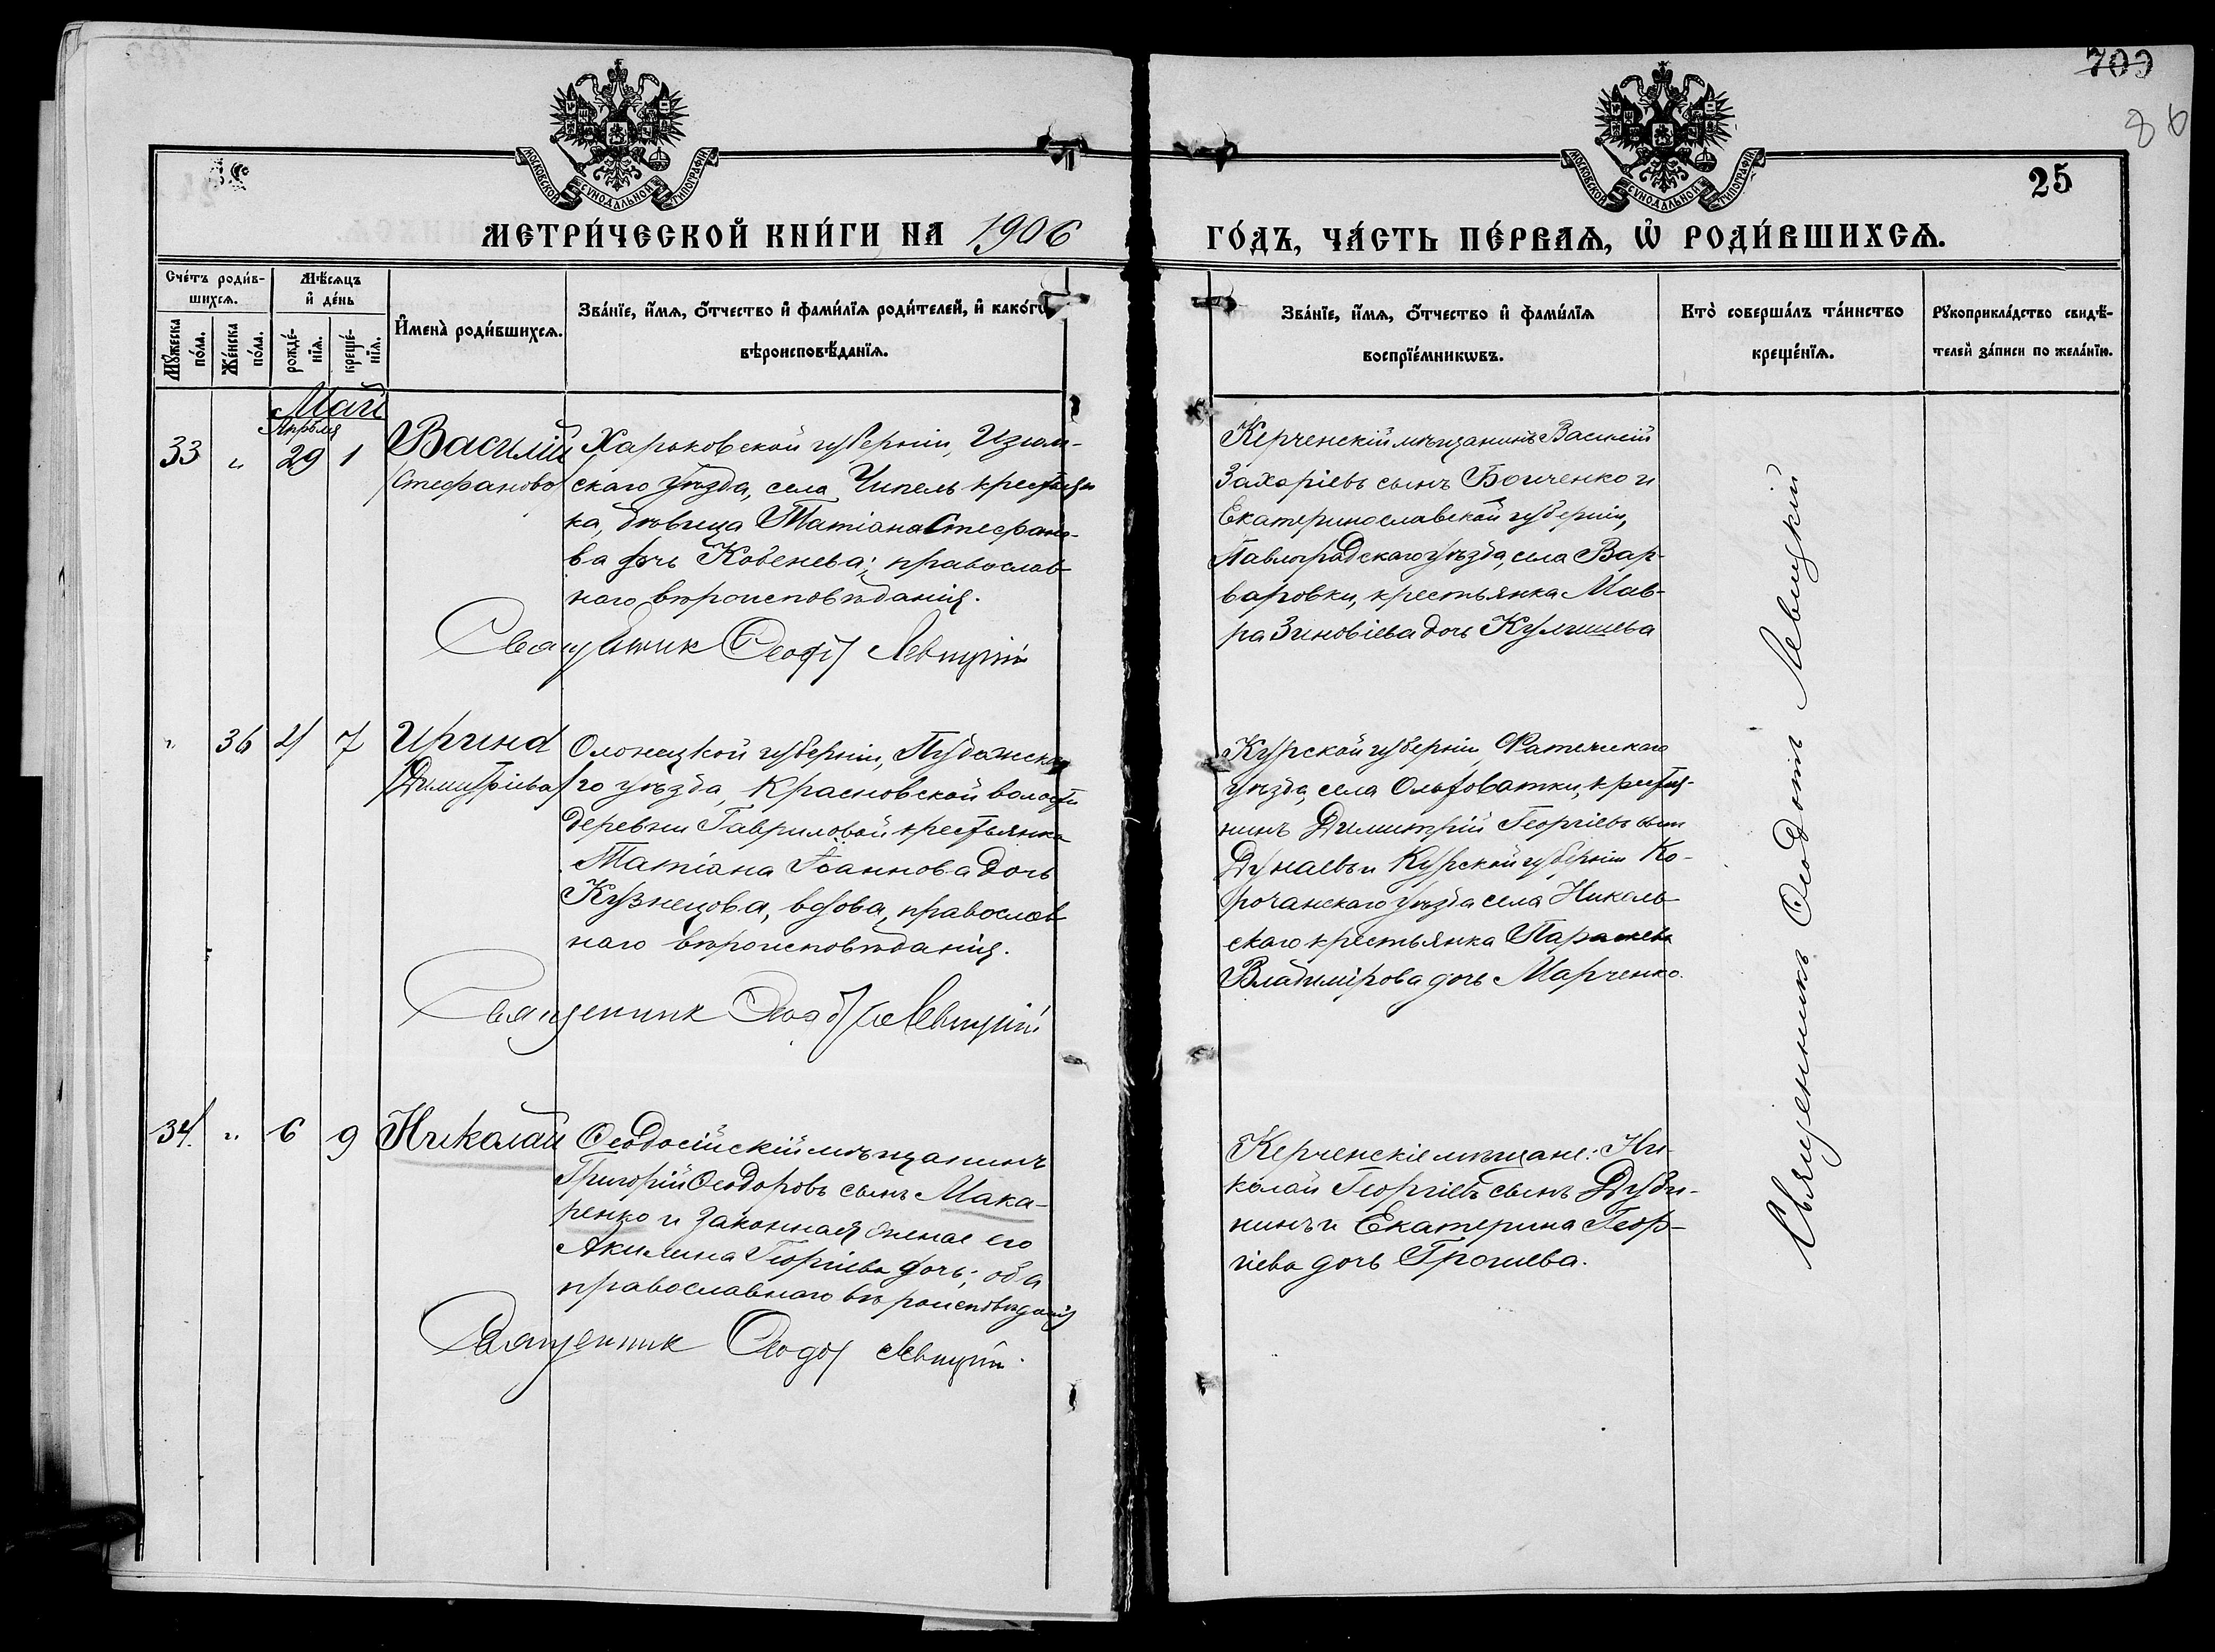 700
86
25
МОСКОВСКОЙ СѴНОДАЛЬНОЙ ТИПОГРАФІИ
МОСКОВСКОЙ СѴНОДАЛЬНОЙ ТИПОГРАФІИ
МЕТРИ́ЧЕСКОЙ КНИ́ГИ НА 1906 ГО́ДЪ, ЧА́СТЬ ПЕ́РВАЯ, Ѡ҆ РОДИ́ВШИХСЯ.
Сче́тъ роди́в-
шихся.
Му́жеска по́ла.
Же́нска по́ла.
Мѣ́сяцъ
и҆ де́нь
рожде́-
нїя.
креще́-
нїя.
И҆мена̀ роди́вшихся.
Зва́нїе, и҆́мя, о҆́тчество и҆ фами́лїя роди́телей, и҆ како́гѡ
вѣроисповѣ́данїя.
Зва́нїе, и҆́мя, о҆́тчество и҆ фами́лїя
воспрїе́мникѡвъ.
Кто̀ соверша́лъ та́инство
креще́нїя.
Рукоприкла́дство свидѣ́-
телей за́писи по жела́нїю.
Май
Апрѣля
33 " 29 1
Василій
/Стефаново/
Харьковской губерніи, Изюм-
скаго уѣзда, села Чипель крестьян
ка, дѣвица Татіана Стефано-
ва дочь Ковенева; православ
наго вѣроисповѣданія.
Священник Ѳеодот Левицкій
Керченскій мѣщанинъ Василій
Захаріевъ сынъ Бойченко и
Екатеринославской губерніи,
Павлоградскаго уѣзда, села Вар-
варовки, крестьянка Мав-
ра Зиновіева дочь Кулишева
" 36 4 7
Ирина
/Димитріева/
Олонецкой губерніи, Пудожска
го уѣзда, Красновской волости
деревни Гавриловой крестьянка
Татіана Іоаннова дочь
Кузнецова, вдова, православ
наго вѣроисповѣданія.
Священник Ѳеодот Левицкій
Курской губерніи Фатежскаго
уѣзда, села Ольховатки, крестья-
нинъ Димитрій Георгіевъ сын
Дунаевъ и Курской губерніи Ко-
рочанскаго уѣзда села Николь
скаго крестьянка Параскева
Владимірова дочь Марченко.
34. " 6 9
Николай
Ѳеодосійскій мѣщанинъ
Григорій Ѳеодоровъ сынъ Мака-
ренко и законная жена его
Акилина Георгіева дочь; оба
православнаго вѣроисповѣданія
Священник Ѳеодот Левицкій.
Керченскіе мѣщане: Ни-
колай Георгіевъ сынъ Дуби-
нинъ и Екатерина Геор-
гіева дочь Грошева.
Священникъ Ѳеодотъ Левицкій